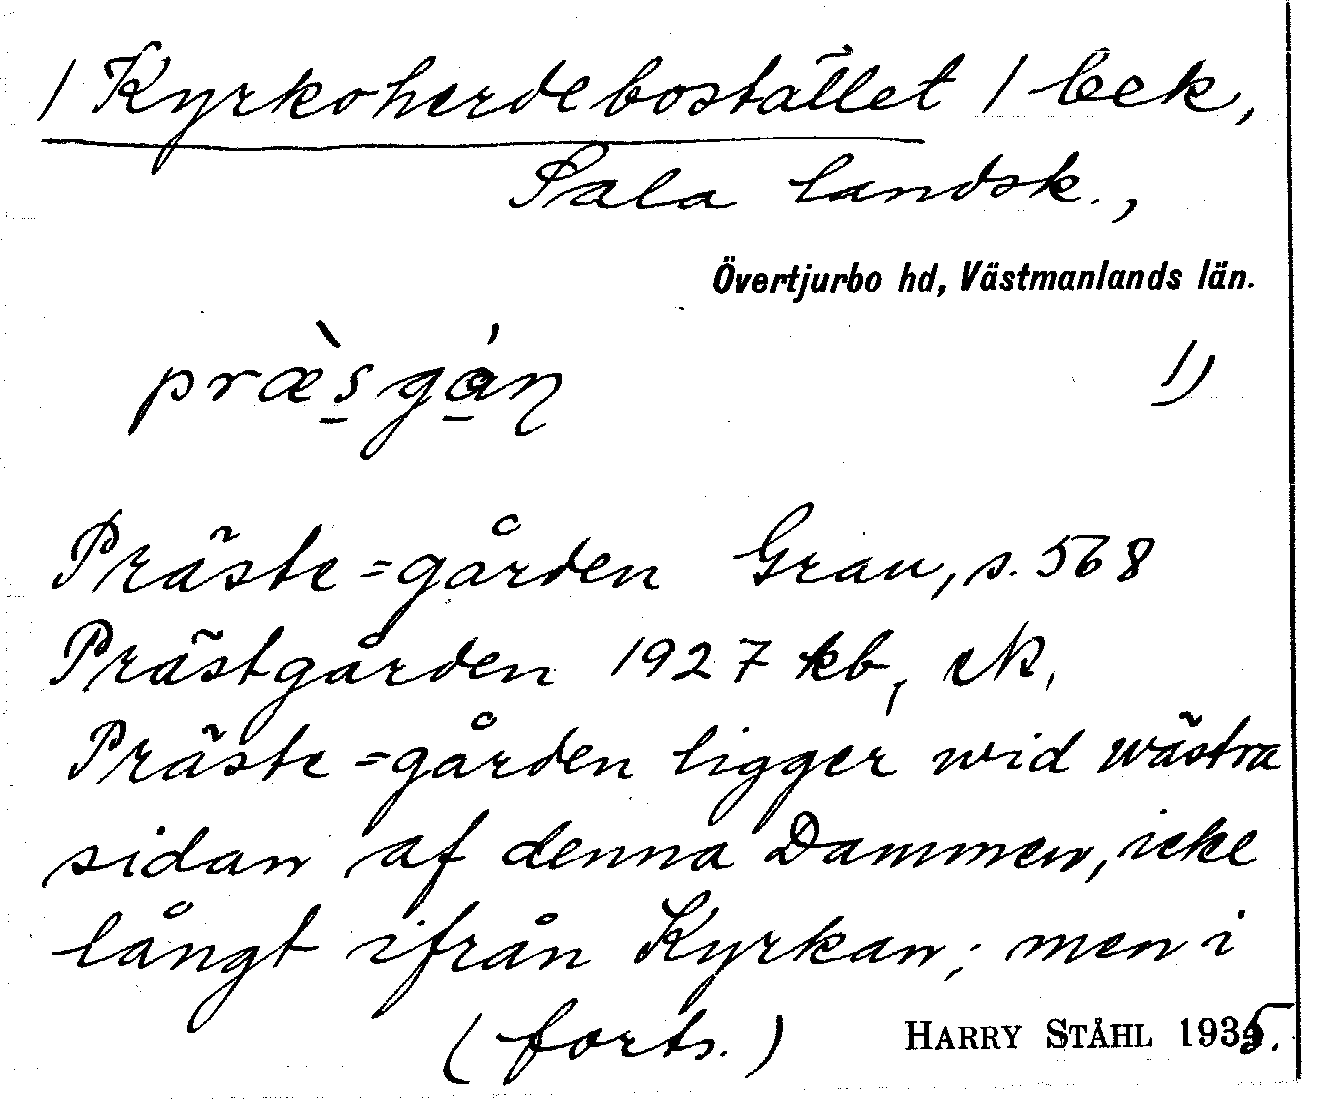 / Kyrkoherdebostället / bek,
Sala landsk.,
Övertjurbo hd, Västmanlands län.
præ̀sgán 1)
Präste=gården Grau, s. 568
Prästgården 1927 kb, ek,
Präste=gården ligger wid wästra
sidan af denna Dammen, icke
långt ifrån Kyrkan; men i
(forts.) HARRY STÅHL 1935.